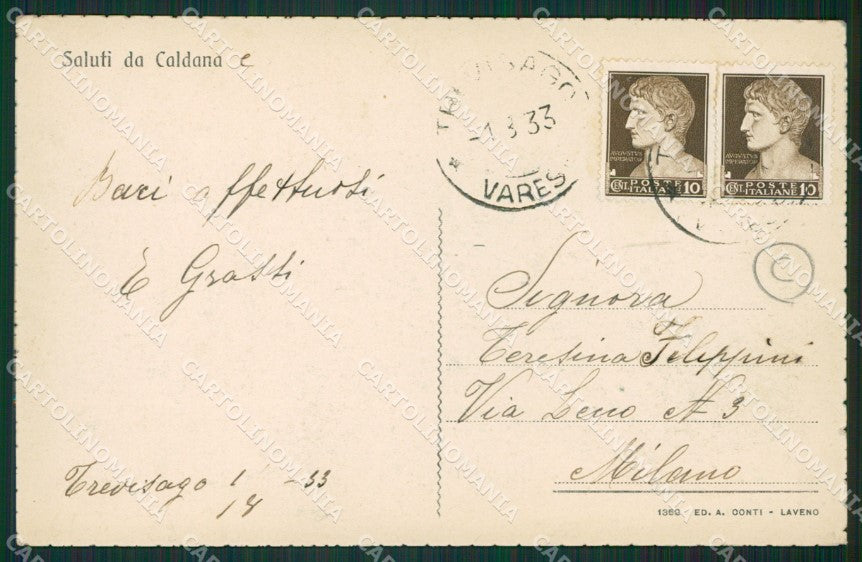 Saluti da Caldana e
TREVISAGO
1 3 33
VARESE
AVGVSTVS
IMPERATOR
CENT. POSTE 10
ITALIANE
AVGVSTVS
IMPERATOR
CENT. POSTE 10
ITALIANE
C
Baci affettuosi
E Grassi
Signora
Teresina Filippini
Via Leno N 3
Milano
Trevisago 1 - 33
1380 - ED. A. CONTI - LAVENO
CARTOLINOMANIA